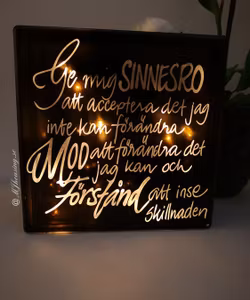 Ge mig SINNESRO
att acceptera det jag
inte kan förändra
MOD att förändra det
jag kan och
förstånd att inse
skillnaden